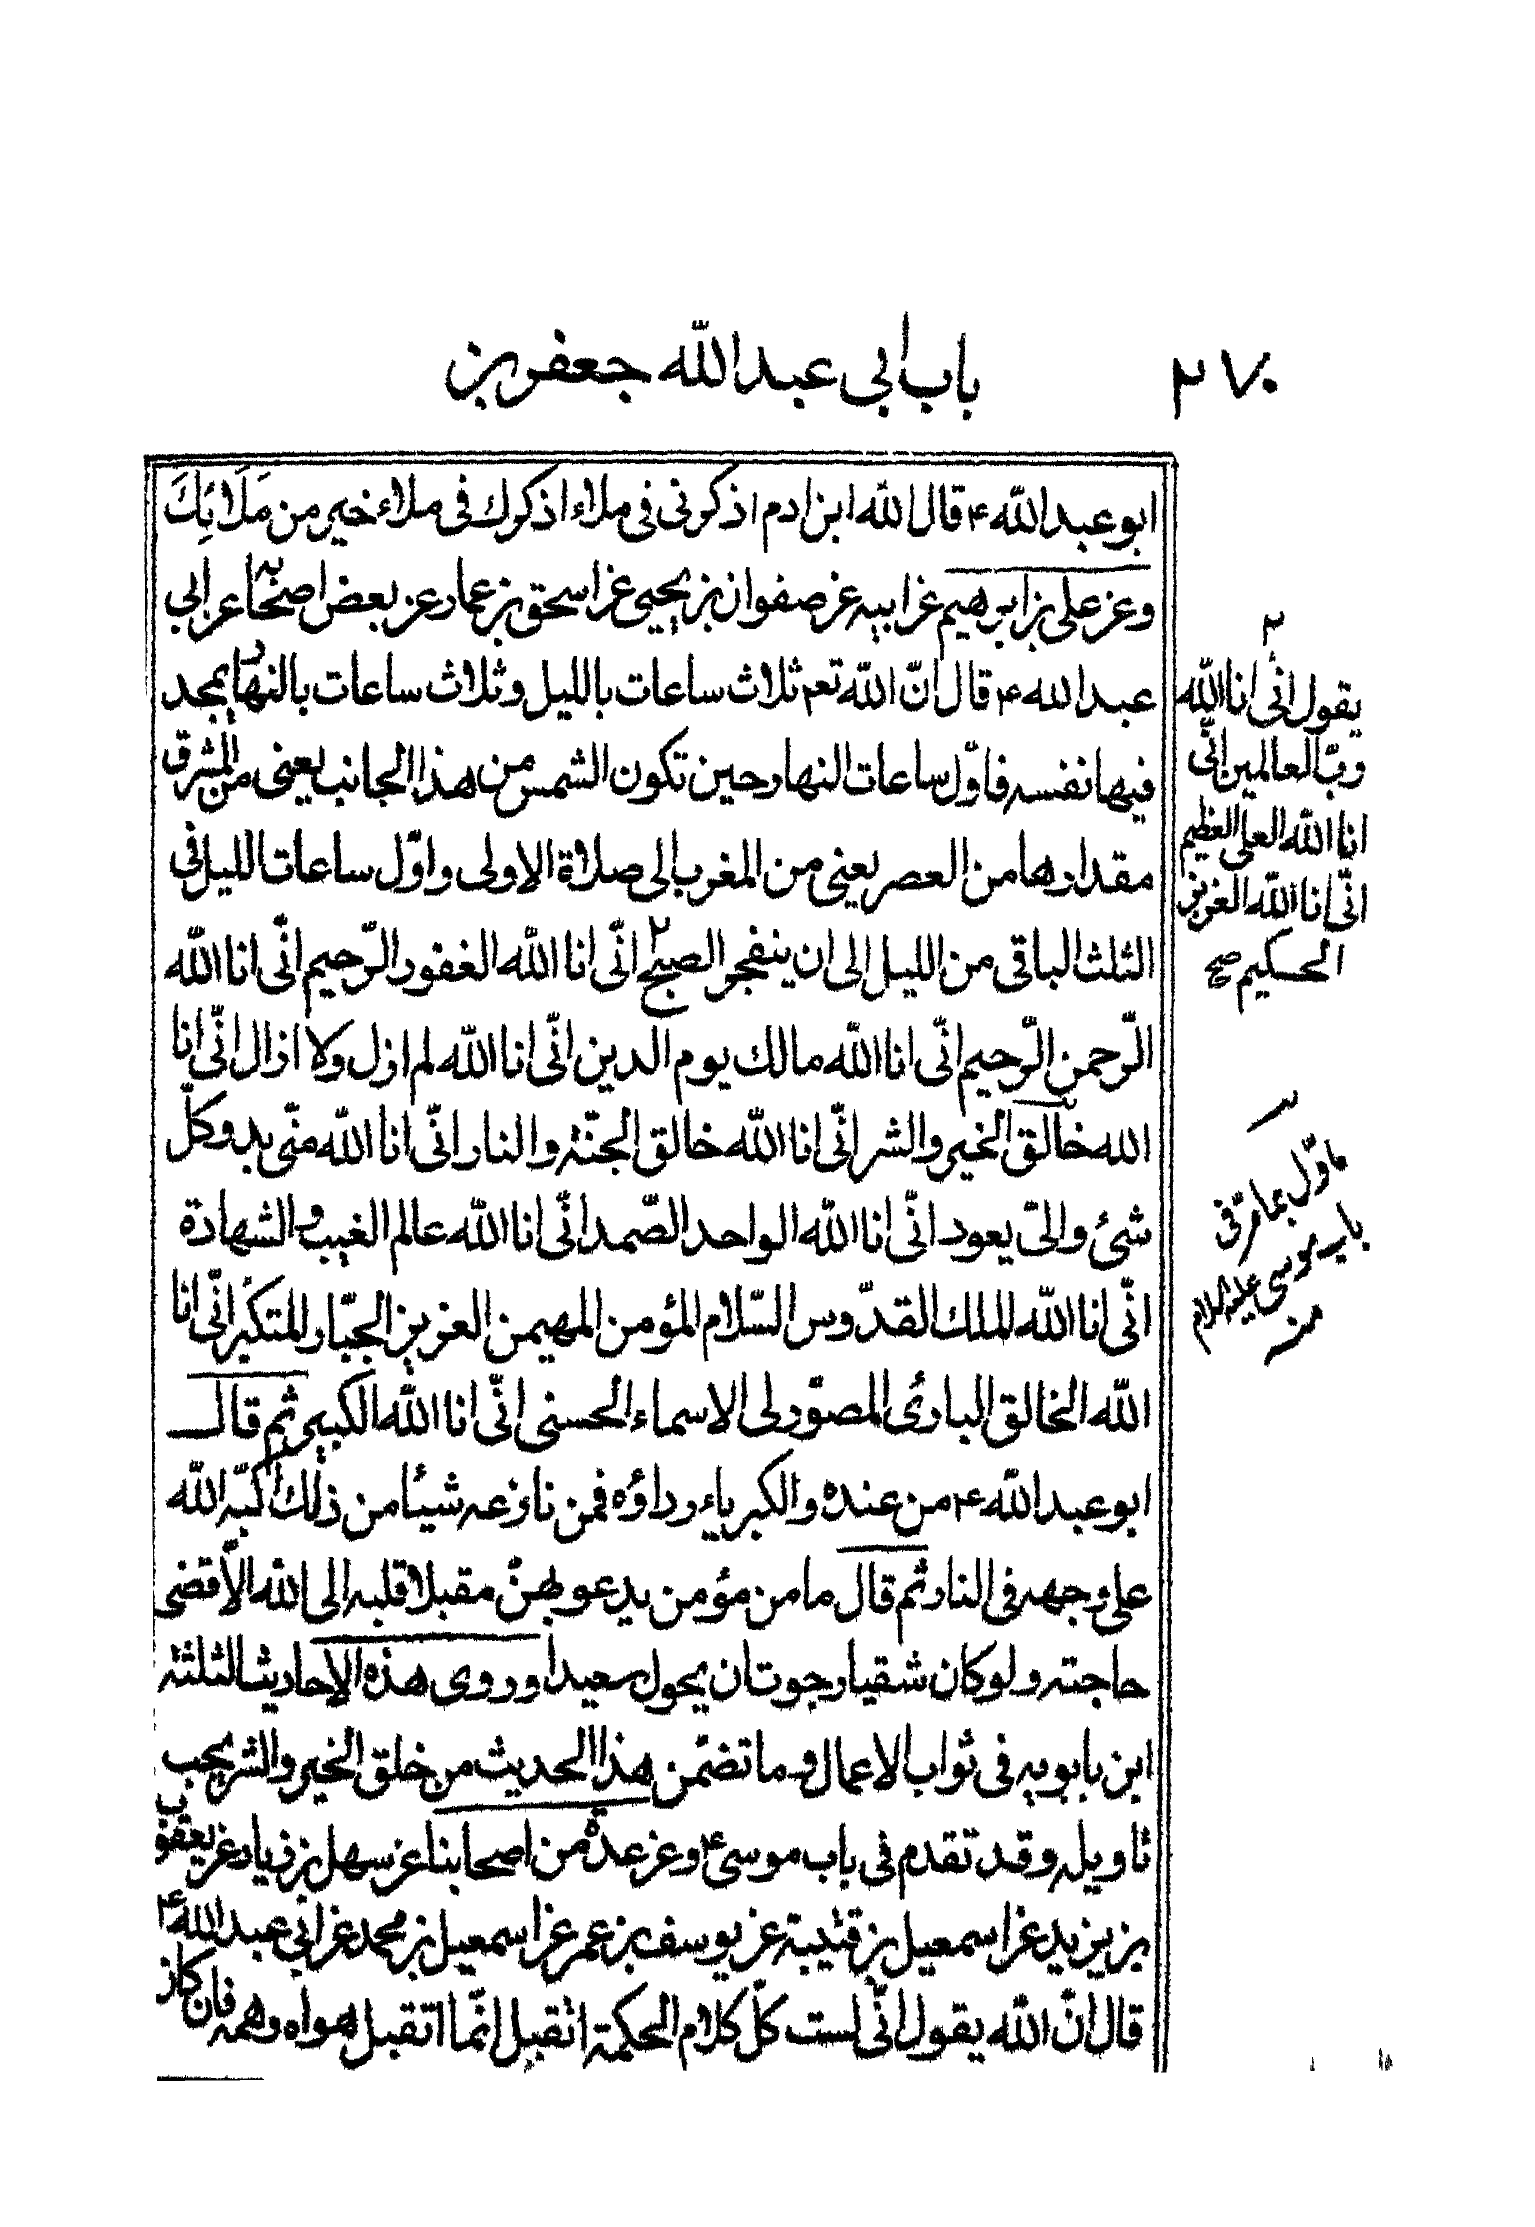 ٢٧٠
باب ابى عبد الله جعفر بن
ابو عبد الله ع قال الله ابن ادم اذكرنى فى ملاء اذكرك فى ملاء خير من مَلَائِكَ
وعن على بن ابرهيم عن ابيه عن صفوان بن يحيى عن اسحق بن عمار عن بعض اصحابه عن ابي
عبد الله ع قال انّ الله تع ثلاث ساعات بالليل وثلاث ساعات بالنهار يمجد
فيها نفسه فاوّل ساعات النهار حين تكون الشمس من هذا الجانب يعنى من المشرق
مقدارها من العصر يعنى من المغرب الى صلاة الاولى واوّل ساعات الليل فى
الثلث الباقى من الليل الى ان ينفجر الصبح ٢ انّى انا الله الغفور الرّحيم انّى انا الله
الرّحمن الرّحيم انّى انا الله مالك يوم الدين انّى انا الله لم ازل ولا ازال انّى انا
الله خالق الخير والشر انّى انا الله خالق الجنّة والنار انّى انا الله منّى بدو كلّ
شئ والىّ يعود انّى انا الله الواحد الصّمد انّى انا الله عالم الغيب والشهادة
انّى انا الله الملك القدّوس السّلام المؤمن المهيمن العزيز الجبّار المتكبر انّى انا
الله الخالق البارئ المصوّر لى الاسماء الحسنى انّى انا الله الكبير ثم قال
ابو عبد الله ع من عنده والكبرياء رداؤه فمن نازعه شيئا من ذلك اكبّه الله
على وجهه فى النار ثم قال ما من مؤمن يدعو بهنّ مقبلا قلبه الى الله الّا قضى
حاجته ولو كان شقيا رجوت ان يحول سعيدا وروى هذه الاحاديث الثلثة
ابن بابويه فى ثواب الاعمال وما تضمّن هذا الحديث من خلق الخير والشر يجب
تاويله وقد تقدم فى باب موسى ع وعن عدة من اصحابنا عن سهل بن زياد عن يعقوب
بن يزيد عن اسمعيل بن قتيبة عن يوسف بن عمر عن اسمعيل بن محمد عن ابى عبد الله ع
قال انّ الله يقول انّى لست كلّ كلام الحكمة اتقبل انّما اتقبل هواه وهمه فان كان
٢
يقول انّى انا الله
ربّ العالمين انّى
انا الله العلى العظيم
انّى انا الله العزيز
الحكيم صح
ماوّل بما مرّ فى
باب موسى عليه السلام
منه